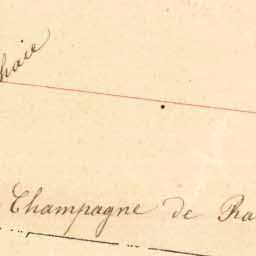 haie
Champagne de Ra